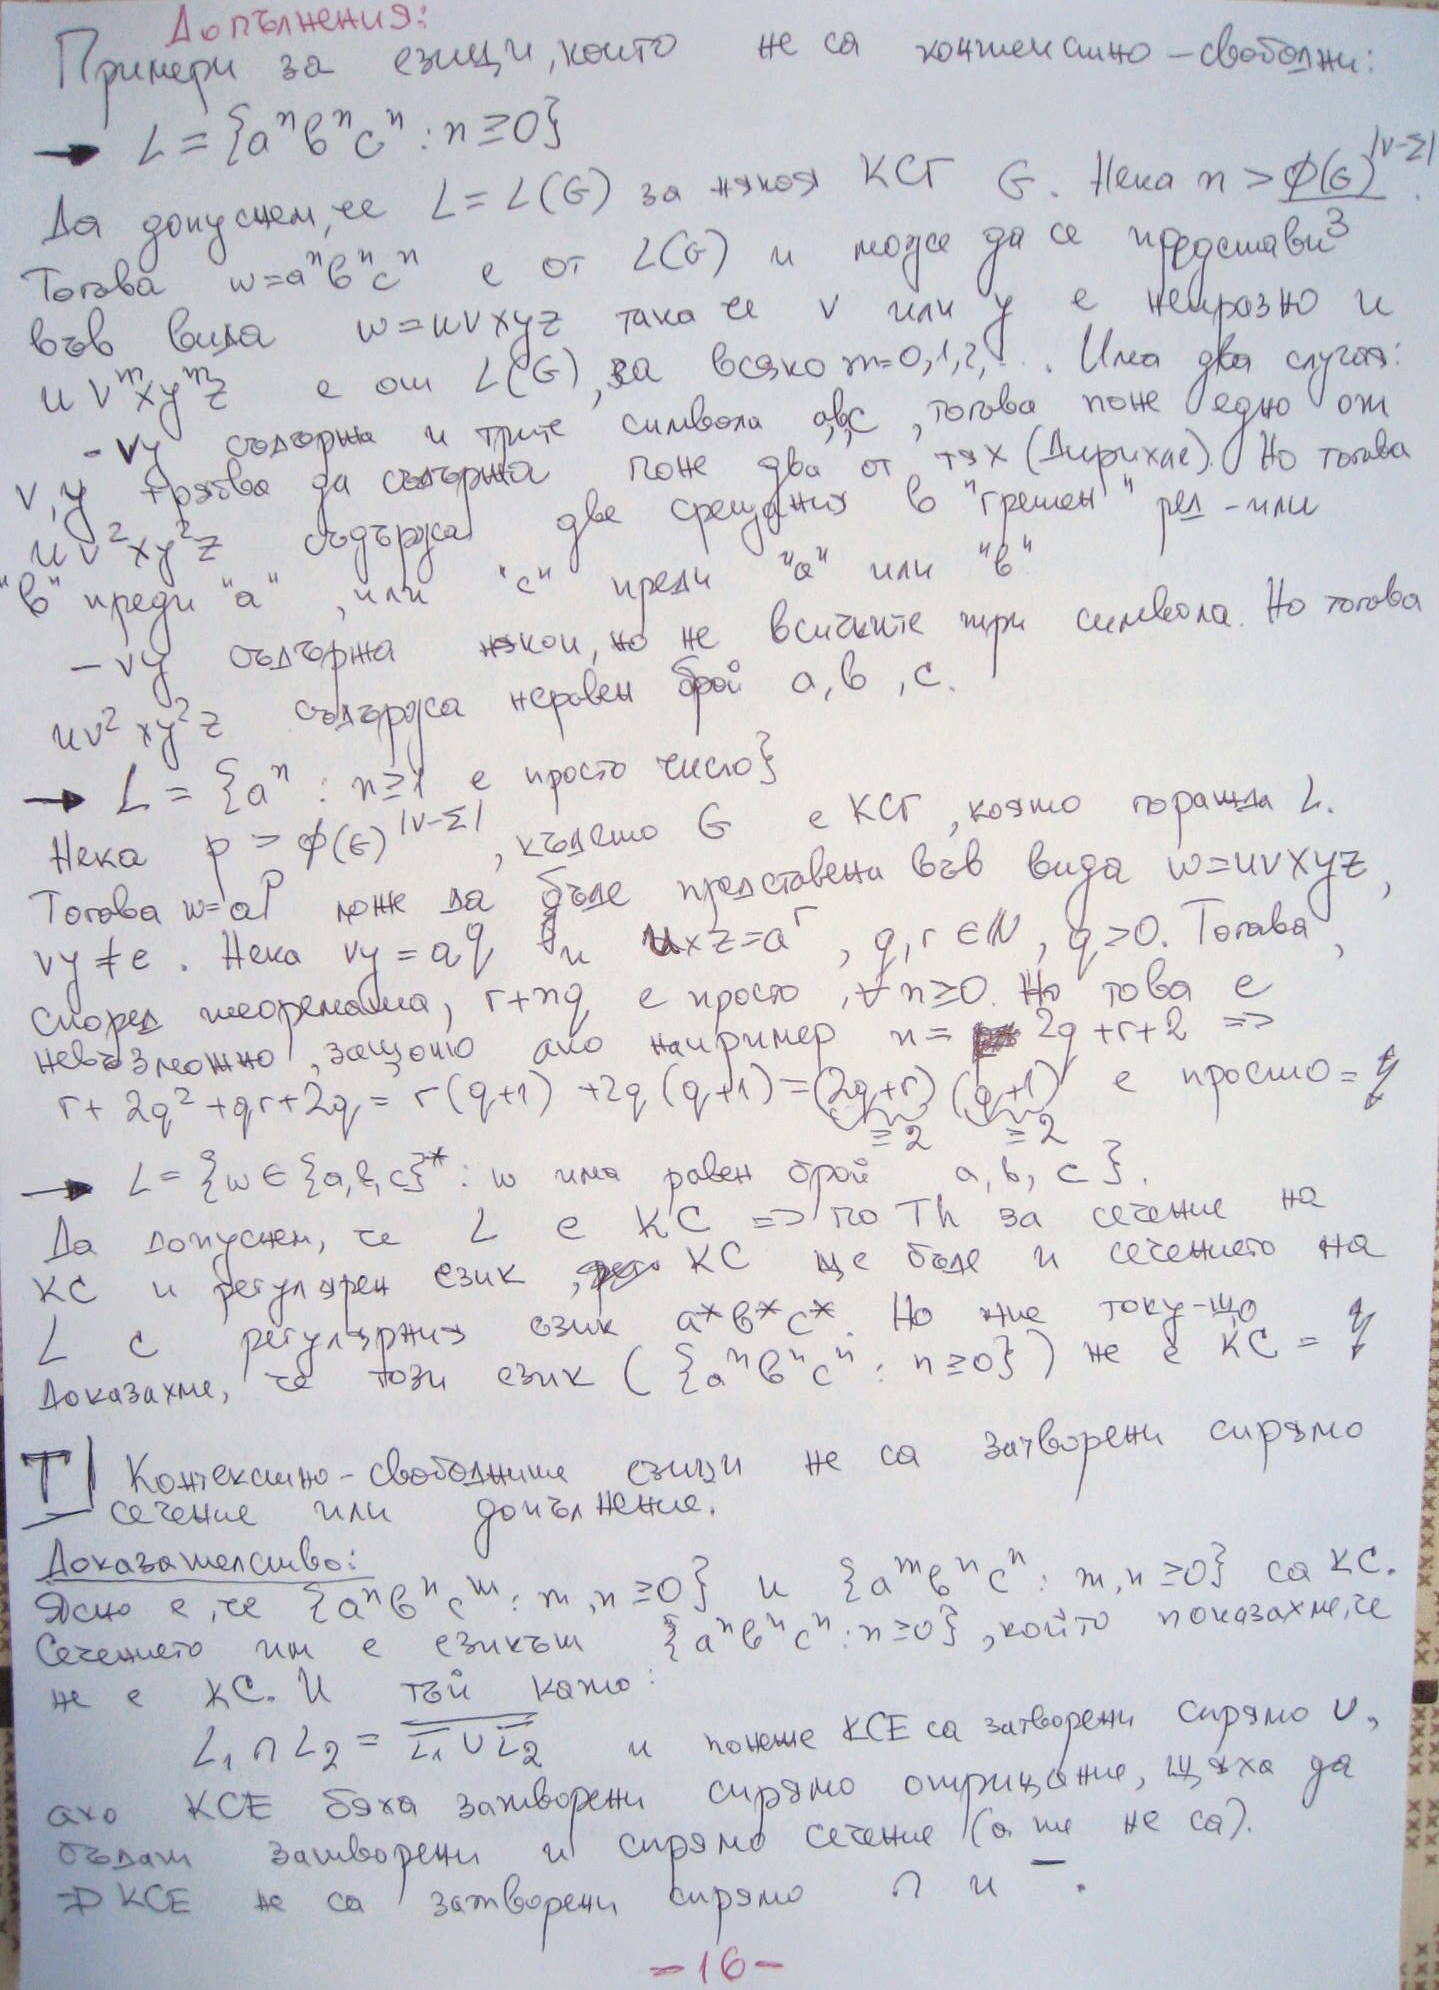 Допълнения:
Примери за езици, които не са контекстно-свободни:
→ L = {aⁿbⁿcⁿ : n ≥ 0}
Да допуснем, че L = L(G) за някоя КСГ G. Нека n > φ(G)^|V-Σ| / 3.
Тогава w = aⁿbⁿcⁿ е от L(G) и може да се представи
във вида w = uvxyz така че v или y е непразно и
u vᵐxyᵐz е от L(G), за всяко m=0,1,2,... Има два случая:
- vy съдържа и трите символа a,b,c, тогава поне едно от
v, y трябва да съдържа поне два от тях (Дирихле). Но тогава
uv²xy²z съдържа две срещания в "грешен" ред - или
"b" преди "a", или "c" преди "a" или "b"
- vy съдържа някои, но не всичките три символа. Но тогава
uv²xy²z съдържа неравен брой a, b, c.
→ L = {aⁿ : n≥1 е просто число}
Нека p > φ(G)^|V-Σ|, където G е КСГ, която поражда L.
Тогава w=aᵖ може да бъде представена във вида w=uvxyz,
vy ≠ e. Нека vy = a^q и uxz=aʳ, q,r ∈ N, q>0. Тогава,
според теоремата, r+nq е просто, ∀ n≥0. Но това е
невъзможно, защото ако например n = 2q+r+2 =>
r+2q²+qr+2q = r(q+1)+2q(q+1) = (2q+r)(q+1) е просто = ↯
≥2 ≥2
→ L = {w ∈ {a,b,c}* : w има равен брой a, b, c}.
Да допуснем, че L е КС => по Th за сечение на
КС и регулярен език, КС ще бъде и сечението на
L с регулярния език a*b*c*. Но ние току-що
доказахме, че този език ({aⁿbⁿcⁿ : n≥0}) не е КС = ↯
T| Контекстно-свободните езици не са затворени спрямо
сечение или допълнение.
Доказателство:
Ясно е, че {aⁿbⁿcᵐ : m,n ≥0} и {aᵐbⁿcⁿ : m,n ≥0} са КС.
Сечението им е езикът {aⁿbⁿcⁿ : n≥0}, който показахме, че
не е КС. И тъй като:
L₁ ∩ L₂ = \overline{\overline{L₁} ∪ \overline{L₂}} и понеже КСЕ са затворени спрямо ∪,
ако КСЕ бяха затворени спрямо отрицание, щяха да
бъдат затворени и спрямо сечение (а те не са).
=> КСЕ не са затворени спрямо ∩ и ¯.
-16-